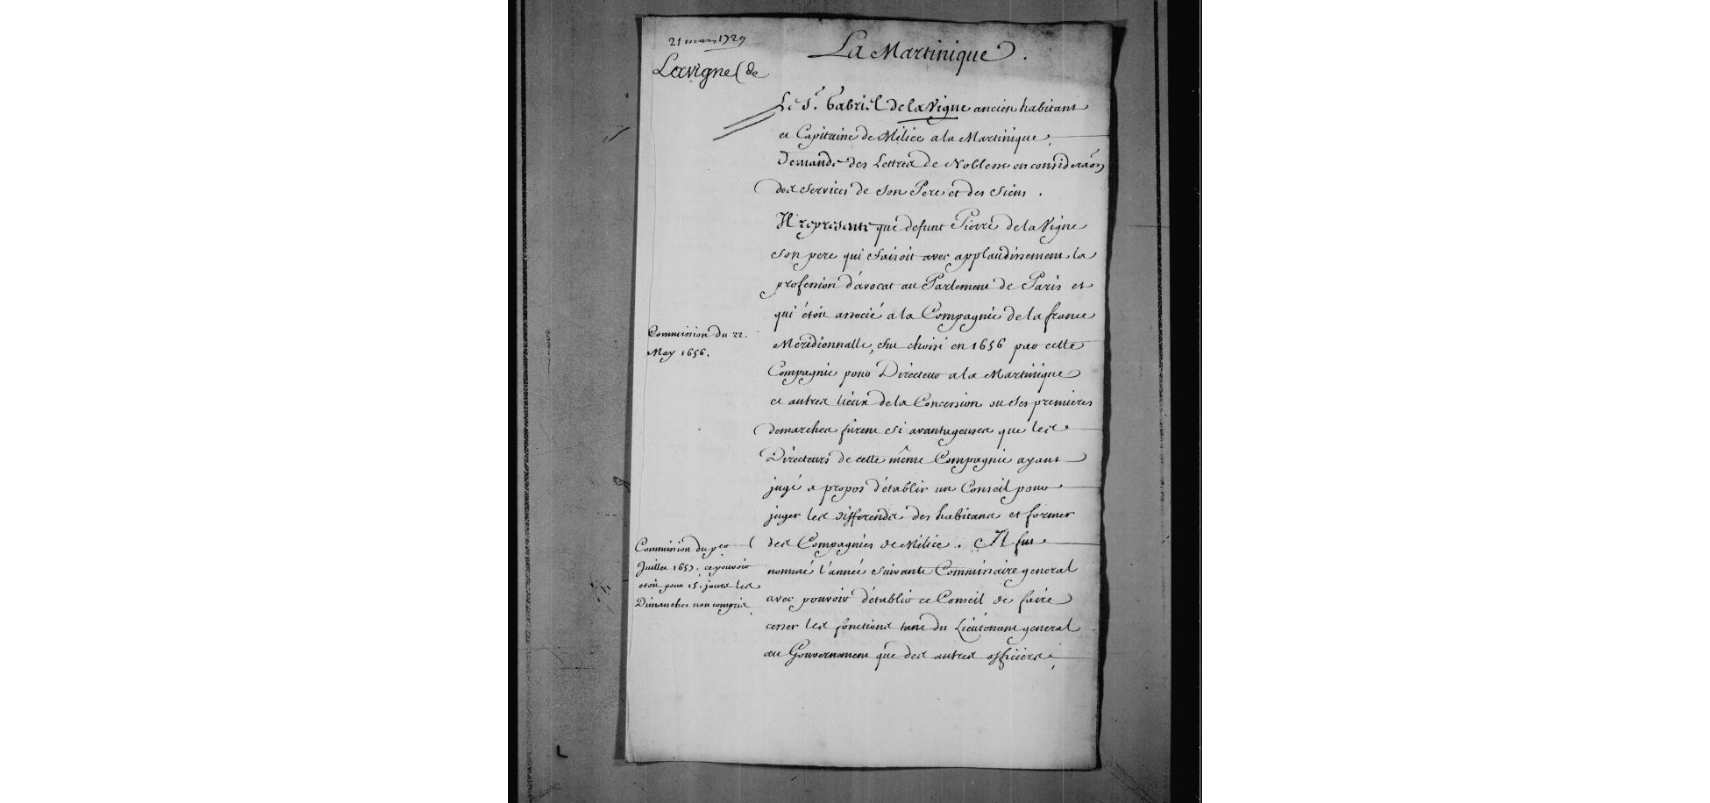 21 mars 1729
La Martinique.
Lavigne (de
Le S.r Gabriel de la Vigne ancien habitant
et Capitaine de Milice a la Martinique,
Demande des Lettres de Noblesse en consideraõn
des services de son Pere et des siens.
Il represente que defunt Pierre de la Vigne
son pere qui faisoit avec applaudissement la
profession d'avocat au Parlement de Paris et
qui étoit associé a la Compagnie de la france
Meridionnalle, fut choisi en 1656 par cette
Compagnie pour Directeur a la Martinique
et autres lieux de la Concession ou ses premieres
demarches furent si avantageuses que les
Directeurs de cette même Compagnie ayant
jugé a propos d'établir un Conseil pour
juger les differends des habitans et former
des Compagnies de Milice. Il fut
nommé l'année suivante Commissaire general
avec pouvoir d'établir ce Conseil de faire
cesser les fonctions tant du Lieutenant general
au Gouvernement que des autres officiers,
Commission du 22.
May 1656.
Commission du p.er
Juillet 1657. ce pouvoir
etoit pour 15. jours les
Dimanches non compris